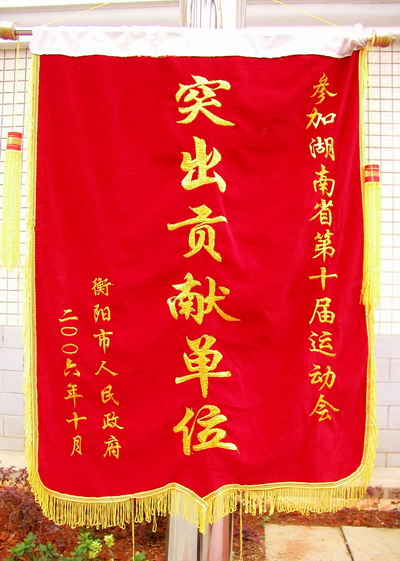 参加湖南省第十届运动会
突出贡献单位
衡阳市人民政府
二〇〇六年十月